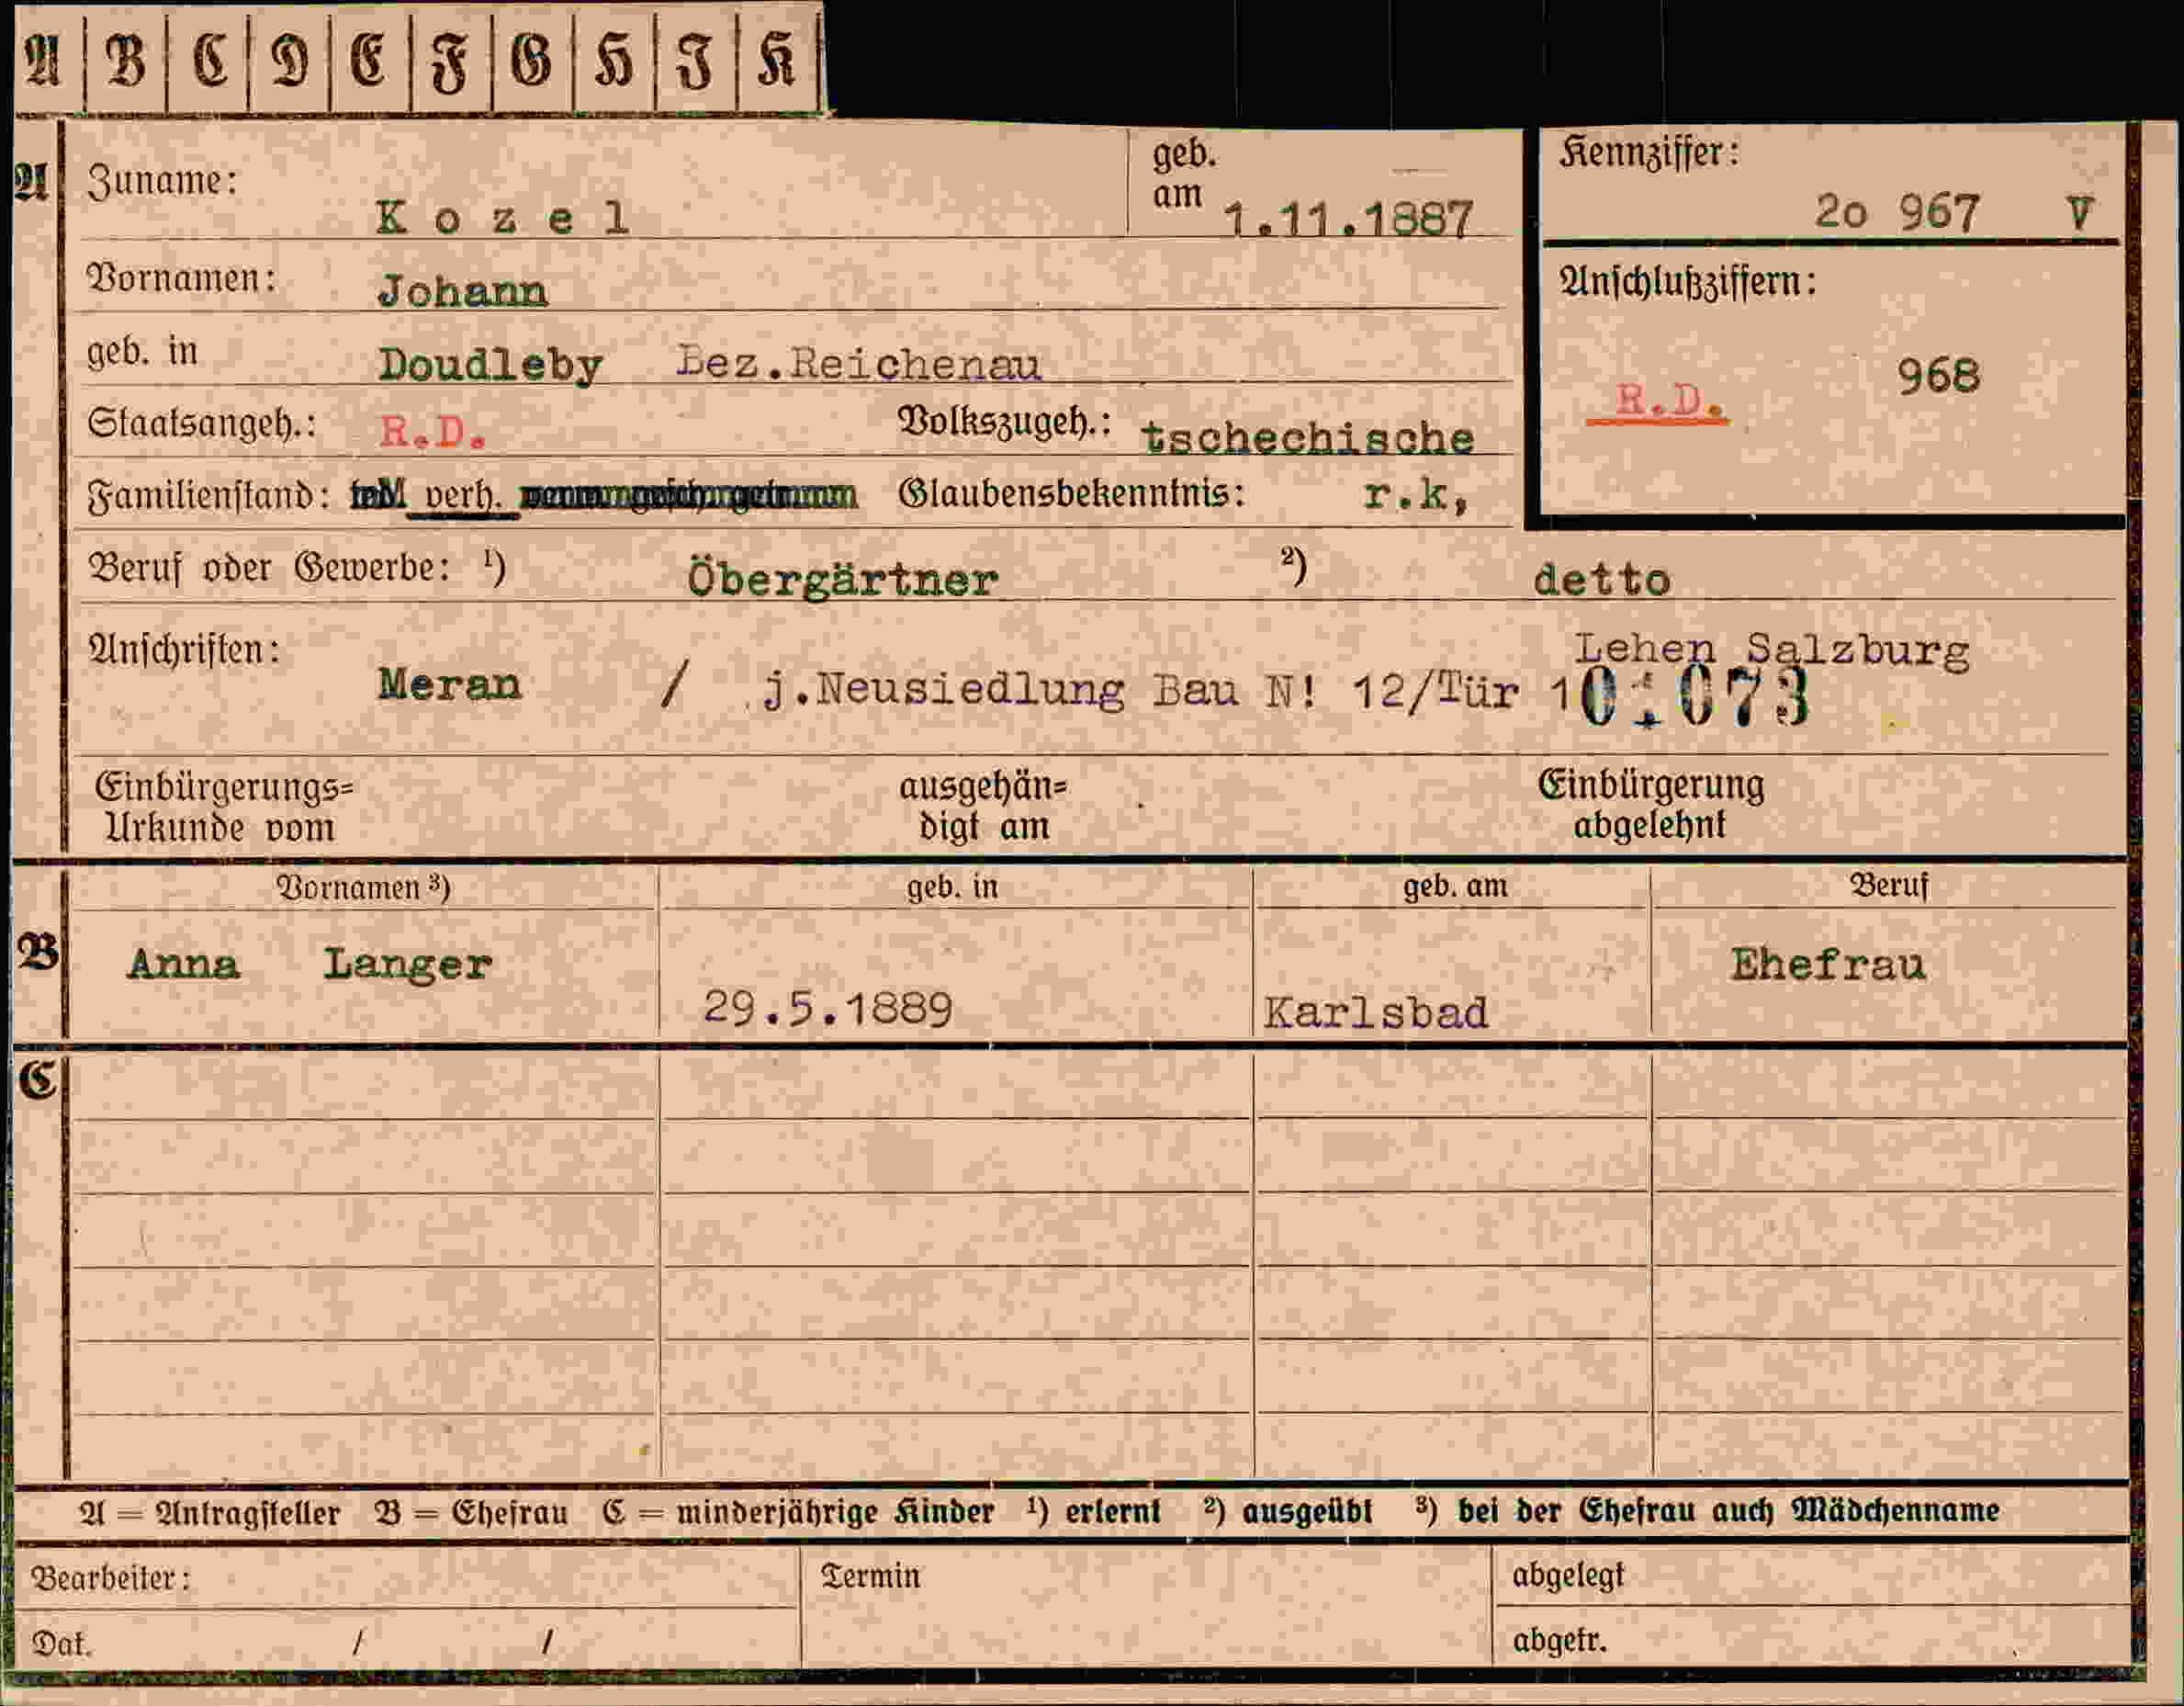 A B C D E F G H I K
A Zuname: Kozel geb. am 1.11.1887
Kennziffer: 2o 967 V
Vornamen: Johann
Anschlußziffern:
geb. in Doudleby Bez.Reichenau
968
R.D.
Staatsangeh.: R.D. Volkszugeh.: tschechische
Familienstand: verh. Glaubensbekenntnis: r.k,
Beruf oder Gewerbe: ¹) Öbergärtner ²) detto
Lehen Salzburg
Anschriften: Meran / j.Neusiedlung Bau N! 12/Tür 1 073
Einbürgerungs= ausgehän= Einbürgerung
Urkunde vom digt am abgelehnt
Vornamen ³) geb. in geb. am Beruf
B Anna Langer Ehefrau
29.5.1889 Karlsbad
C
A = Antragsteller B = Ehefrau C = minderjährige Kinder ¹) erlernt ²) ausgeübt ³) bei der Ehefrau auch Mädchenname
Bearbeiter: Termin abgelegt
Dat. / / abgetr.